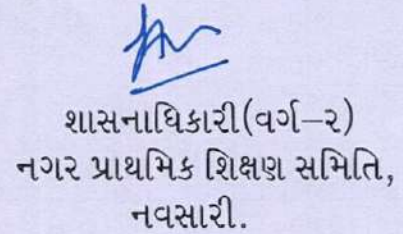 શાસનાધિકારી(વર્ગ–૨)
નગર પ્રાથમિક શિક્ષણ સમિતિ,
નવસારી.